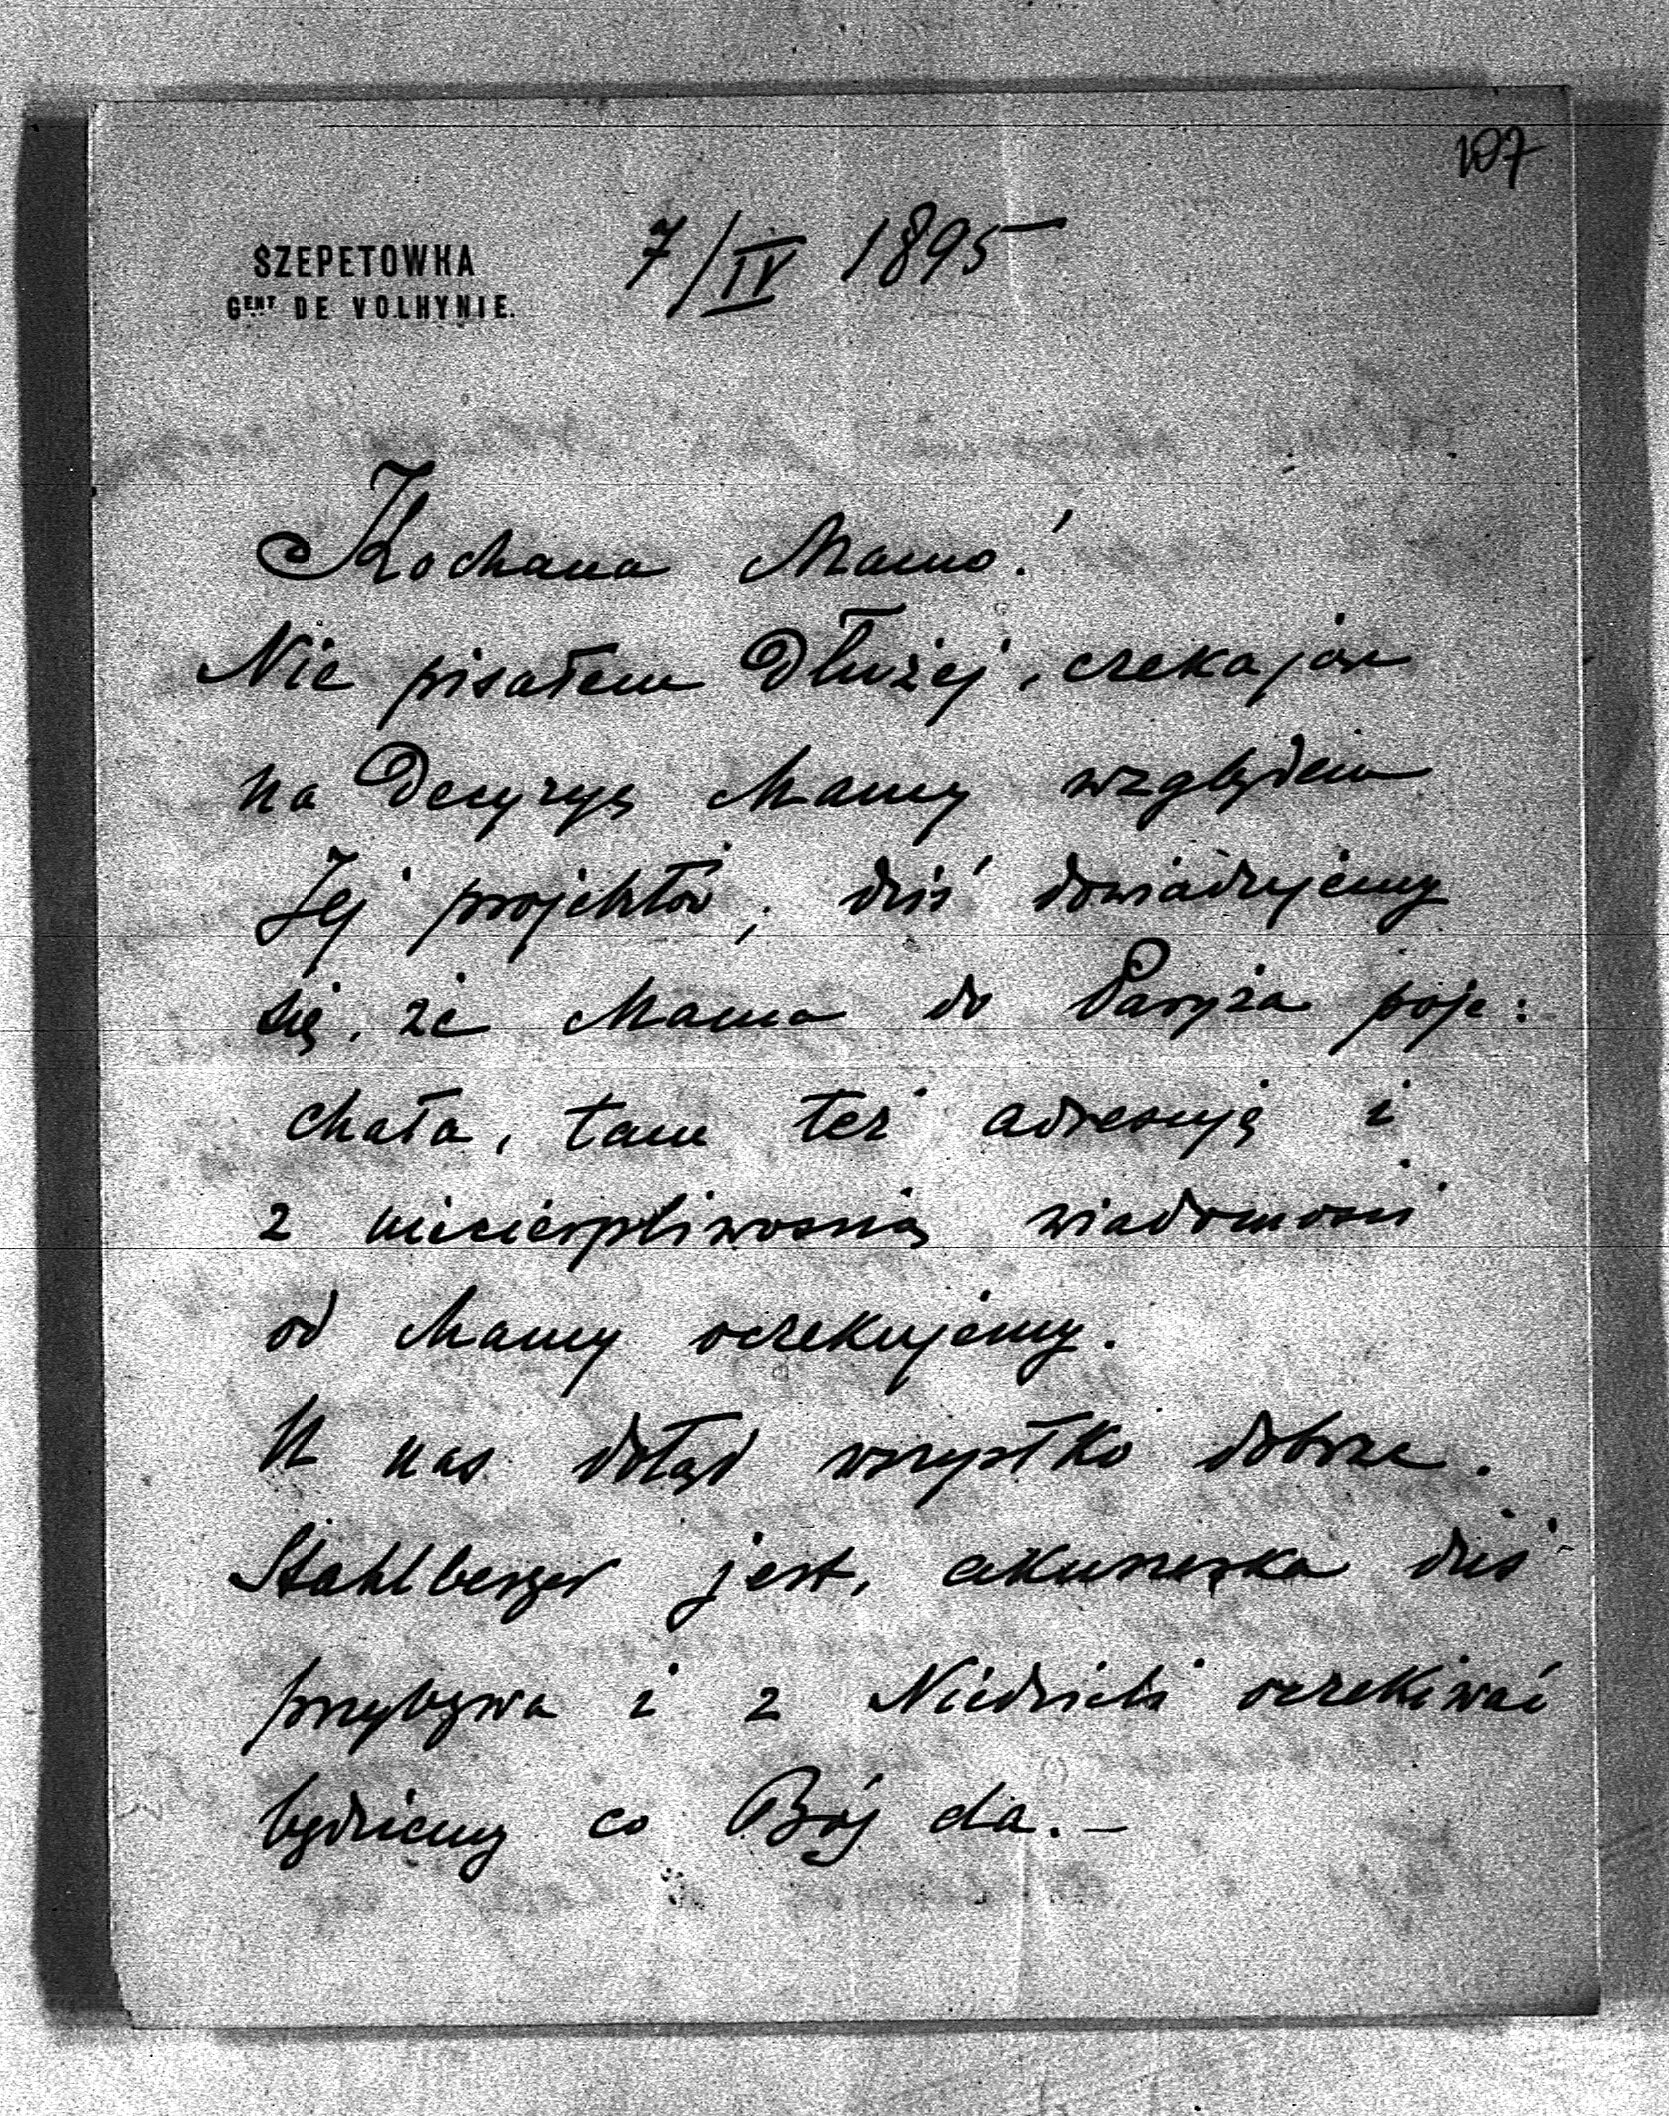 107
SZEPETOWKA
GENT DE VOLHYNIE.
7/IV 1895
Kochana Mamo!
Nie pisałem dłużej, czekając
na decyzyę Mamy względem
Jej projektów, dziś dowiadujemy
się, że Mama do Paryża poje:
chała, tam też adresuję i
z niecierpliwością wiadomości
od Mamy oczekujemy.
U nas dotąd wszystko dobrze.
Stahlberger jest, akuszerka dziś
przybywa i z Niedzieli oczekiwać
będziemy co Bóg da.–